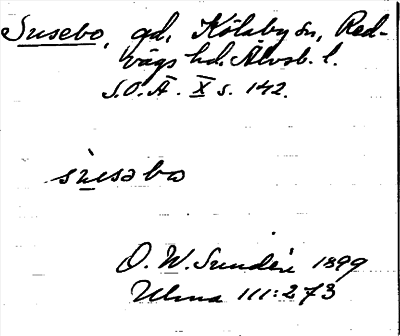 Susebo, gd, Kölaby sn, Red-
vägs hd. Älvsb. l.
S.O.Ä. X s. 142.
sùsabo
O. W. Sundén 1899
Ulma 111:273